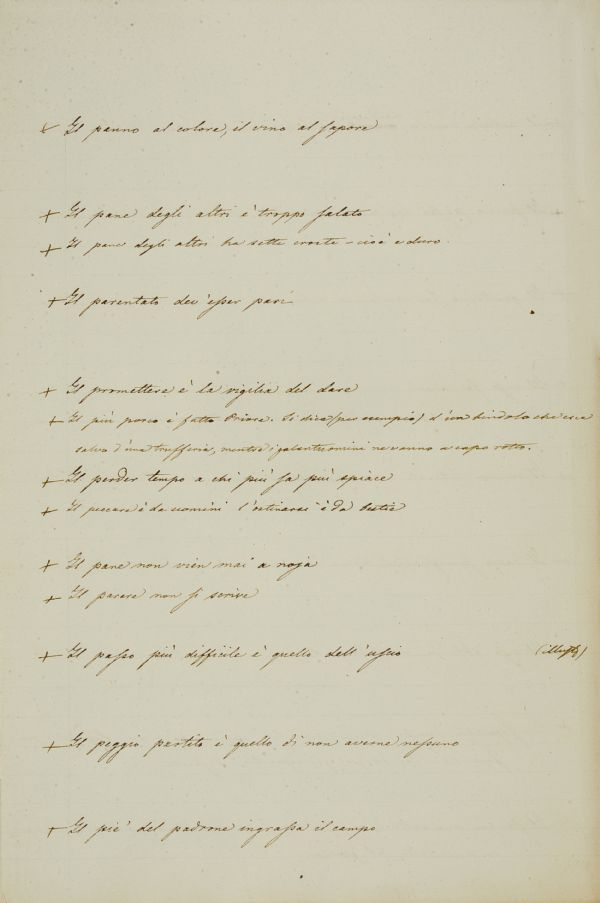 + Il panno al colore, il vino al sapore
+ Il pane degli altri è troppo salato
+ Il pane degli altri ha sette croste - cioè è duro.
+ Il parentato dev'esser pari
+ Il promettere è la vigilia del dare
+ Il più porco è fatto Priore. Si dice (per esempio) d'un bindolo che esce
salvo d'una trufferia, mentre i galantuomini ne vanno a capo rotto.
+ Il perder tempo a chi più sa più spiace
+ Il peccare è da uomini l'ostinarsi è da bestie
+ Il pane non vien mai a noja
+ Il parere non si scrive
+ Il passo più difficile è quello dell'uscio (illustr)
+ Il peggio partito è quello di non averne nessuno
+ Il piè del padrone ingrassa il campo